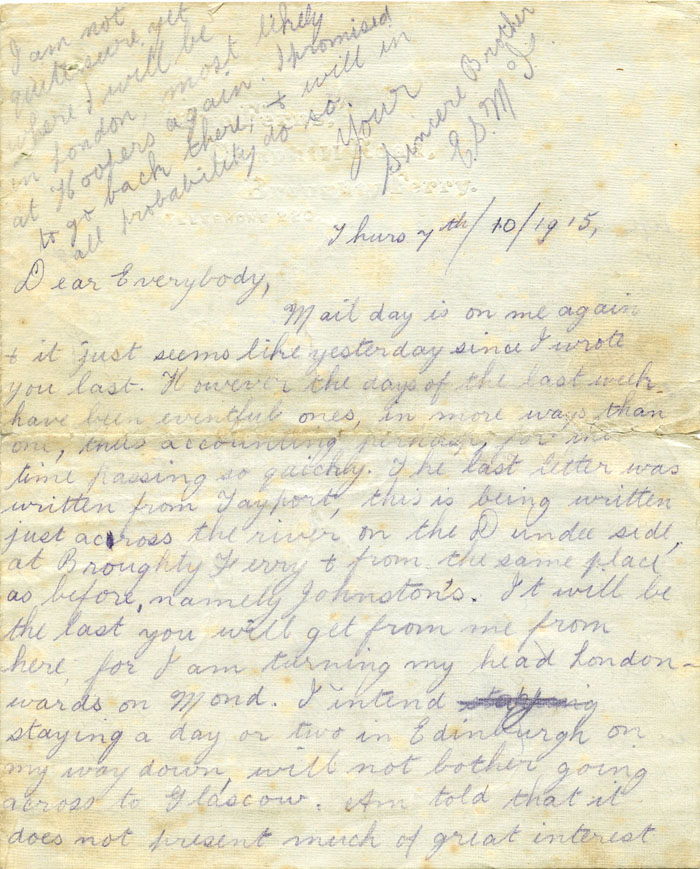 I am not
quite sure yet
where I will be
in London, most likely
at Hoopers again. I promised
to go back there, & will in
all probability do so.
Your
Sincere Brother
Ferry.
Thurs 7th/10/1915,
Dear Everybody,
Mail day is on me again
& it just seems like yesterday since I wrote
you last. However the days of the last week
have been eventful ones, in more ways than
one, thus accounting perhaps for the
time passing so quickly. The last letter was
written from Tayport, this is being written
just across the river on the Dundee side,
at Broughty Ferry & from the same place
as before, namely Johnston's. It will be
the last you will get from me from
here, for I am turning my head London-
wards on Mond. I intend
staying a day or two in Edinburgh on
my way down, will not bother going
across to Glascow. Am told that it
does not present much of great interest